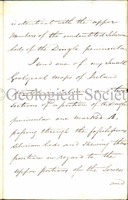 with the upper
members of the undoubted Silurian
beds of the Dingle promontory
I send one of my small
Geological maps of Ireland
Geological Society
sections of a portion of the Dingle
promontory are marked A.
passing through the fossiliferous
Silurian beds and shewing their
position in regard to the
upper portions of the
and